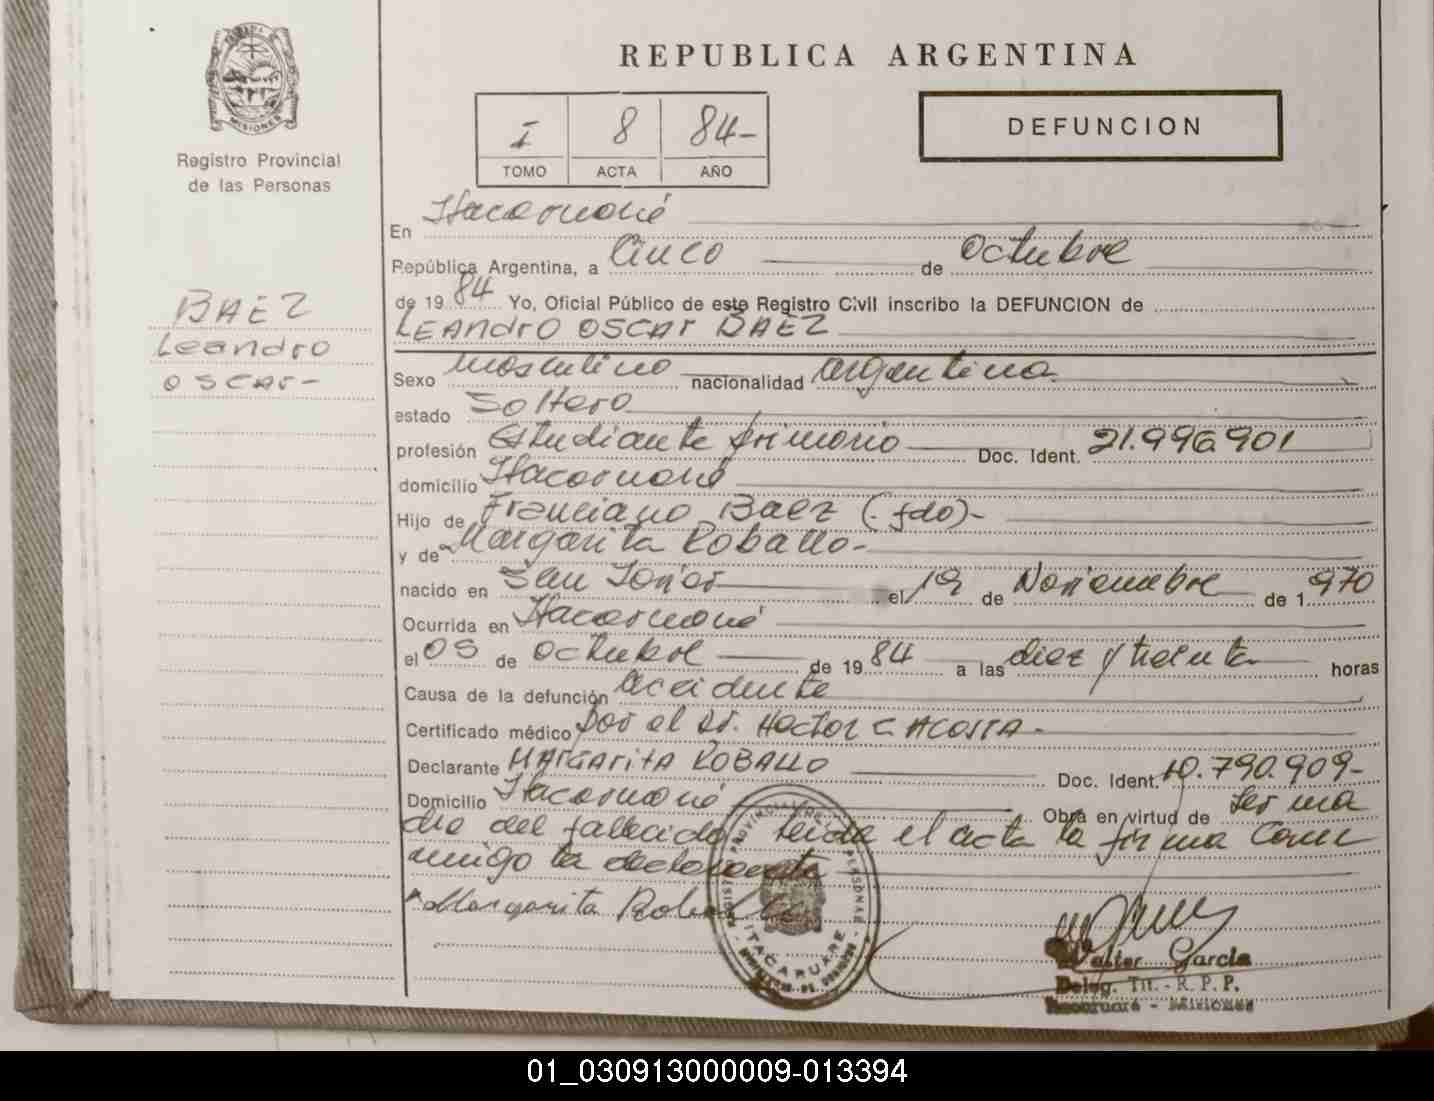 MISIONES
Registro Provincial
de las Personas
BAEZ
Leandro
OSCAR-
REPUBLICA ARGENTINA
I 8 84-
TOMO ACTA AÑO
DEFUNCION
En Itacaruaré
República Argentina, a Cinco de octubre
de 1984 Yo, Oficial Público de este Registro Civil inscribo la DEFUNCION de
LEANDRO OSCAR BAEZ
Sexo Masculino nacionalidad argentina
estado Soltero
profesión Estudiante primario Doc. Ident. 21.996.901
domicilio Itacaruaré
Hijo de Franciano Baez (fdo)-
y de Margarita Roballo-
nacido en San Javier el 19 de Noviembre de 1.970
Ocurrida en Itacaruaré
el 05 de octubre de 1984 a las diez y treinta horas
Causa de la defunción accidente
Certificado médico por el Dr. Hector C. ACOSTA-
Declarante MARGARITA ROBALLO Doc. Ident. 10.790.909-
Domicilio Itacaruaré Obra en virtud de ser ma
dre del fallecido leida el acta la firma con
migo la declarante
Margarita Roballo
ITACARUARE
Walter García
Deleg. Tit. - R. P. P.
Itacaruaré - Misiones
01_030913000009-013394